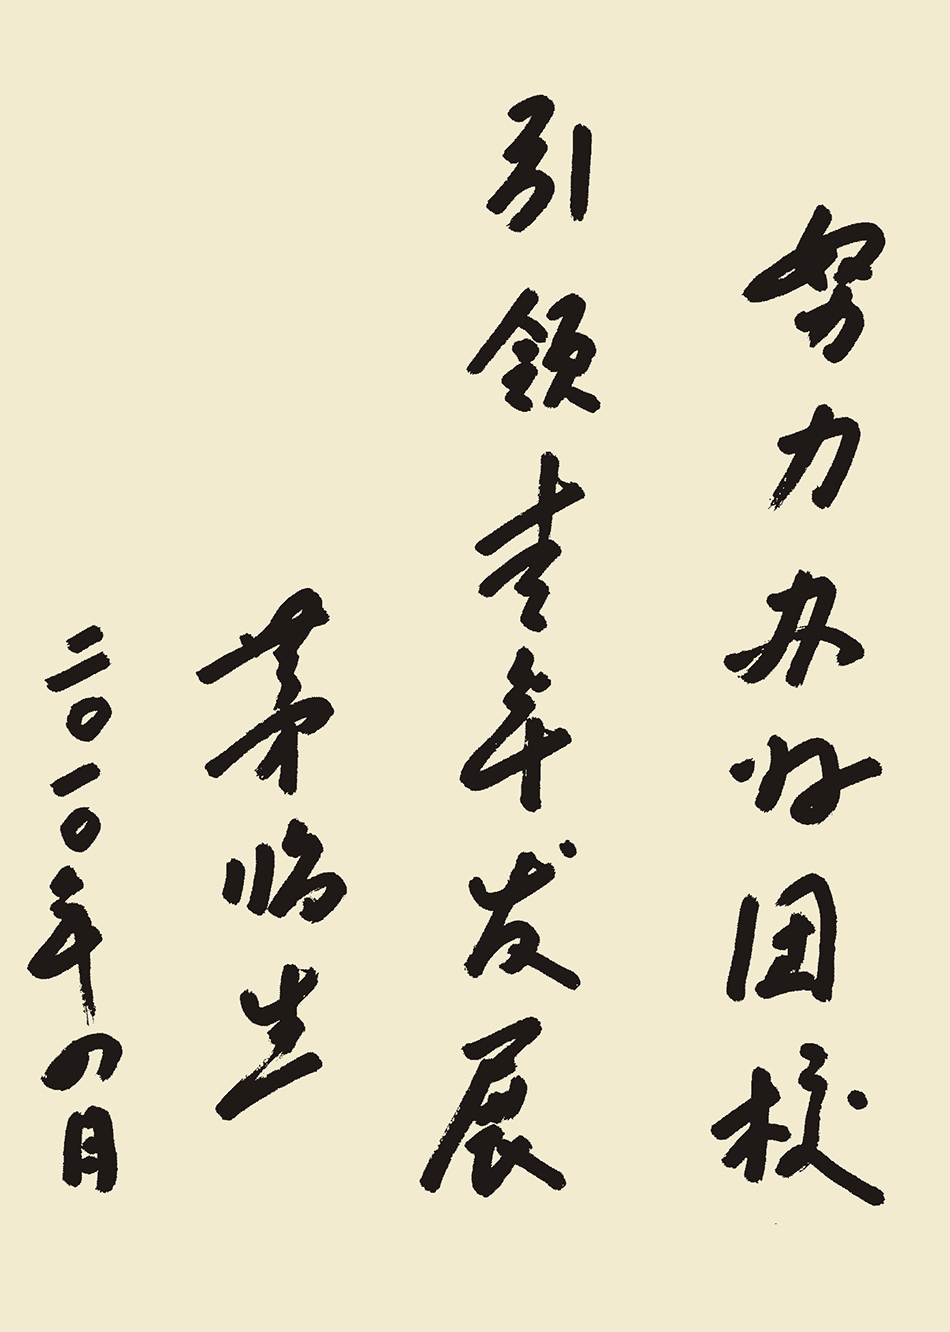 努力办好团校
引领青年发展
茅临生
二〇一〇年四月